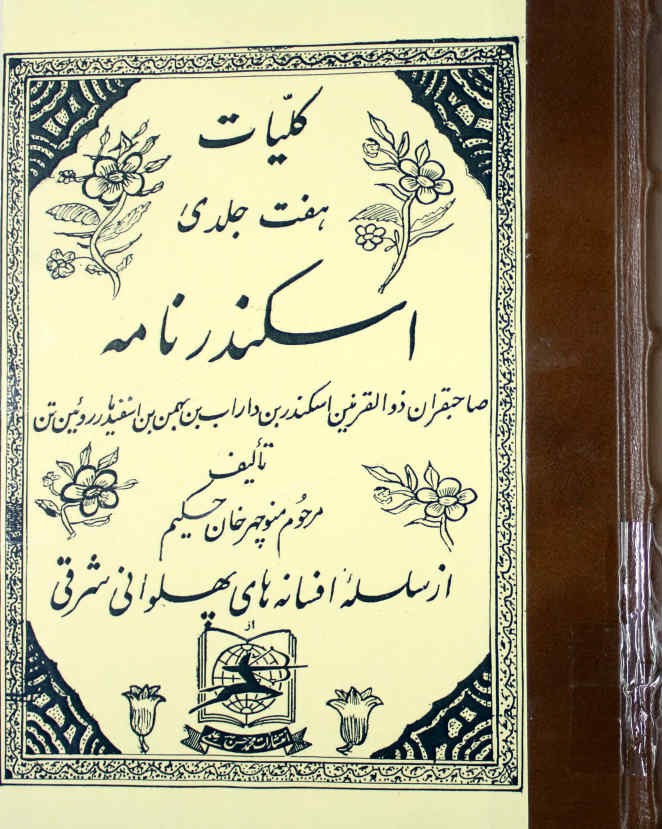 کلیّات
هفت جلدی
اسکندر نامه
صاحبقران ذوالقرنین اسکندر بن داراب بن بهمن بن اسفندیار روئین تن
تألیف
مرحوم منوچهرخان حکیم
از سلسلهٔ افسانه های پهلوانی شرقی
از
انتشارات محمد حسن علمی